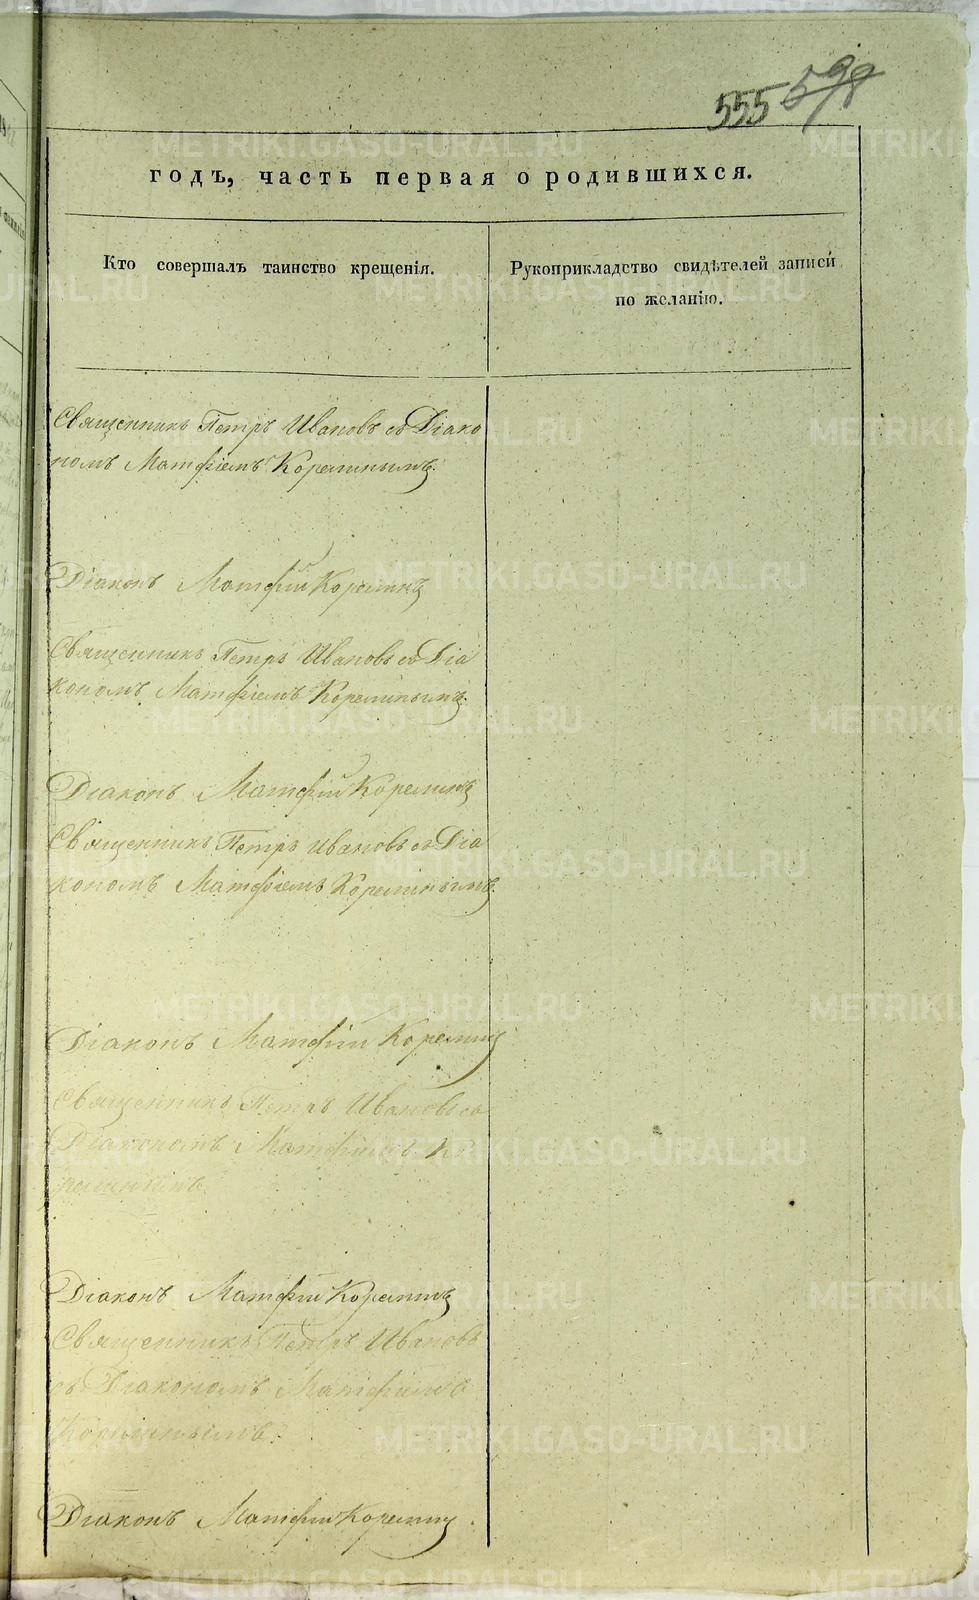 555 598
годъ, часть первая о родившихся.
Кто совершалъ таинство крещенія.
Рукоприкладство свидѣтелей записи
по желанію.
Священникъ Петръ Ивановъ съ Діако
номъ Матфіемъ Коремнымъ.
Діаконъ Матфій Кореминъ
Священникъ Петръ Ивановъ съ Діа
кономъ Матфіемъ Кореминымъ.
Діаконъ Матфій Кореминъ
Священникъ Петръ Ивановъ съ Діа
кономъ Матфіемъ Кореминымъ.
Діаконъ Матфій Кореминъ
Священникъ Петръ Ивановъ съ
Діакономъ Матфіемъ Ко
реминымъ.
Діаконъ Матфій Кореминъ
Священникъ Петръ Ивановъ
съ Діакономъ Матфіемъ
Кореминымъ.
Діаконъ Матфій Кореминъ.
METRIKI.GASO-URAL.RU